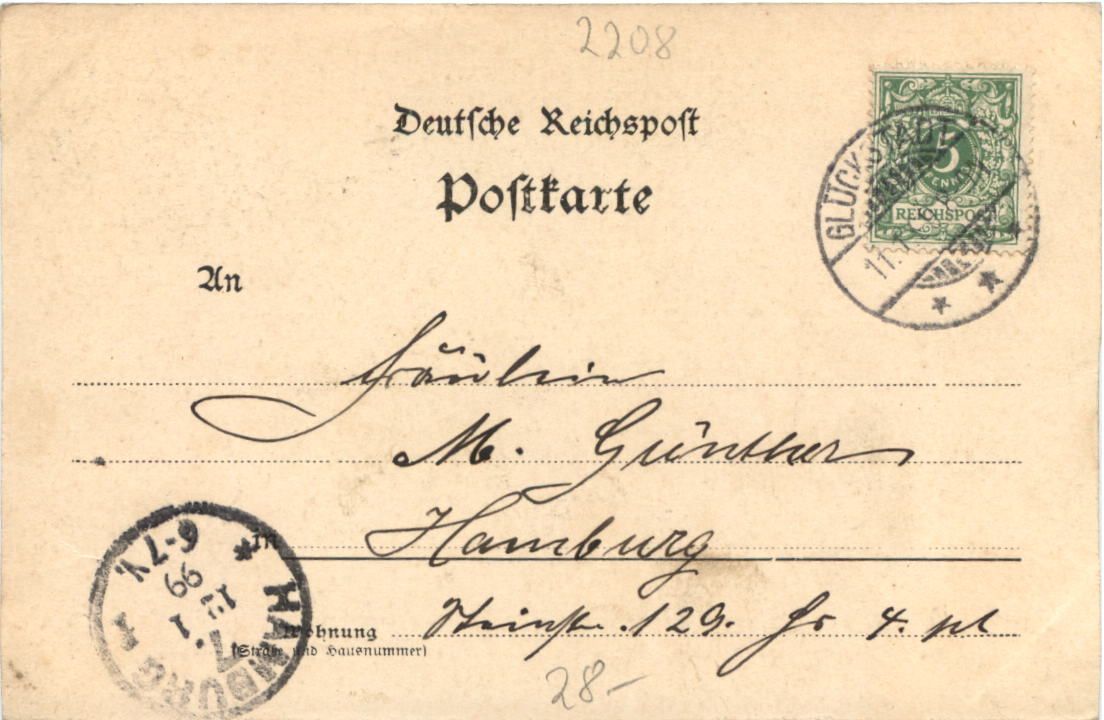 2208
Deutsche Reichspost
Postkarte
GLÜCKSTADT
11.1
5
PFENNIG
REICHSPOST
An
Fräulein
M. Günther
in Hamburg
Wohnung Steinstr. 129. Hs 4. pt
(Straße und Hausnummer)
HAMBURG 1
12 1
99
6-7V.
28-